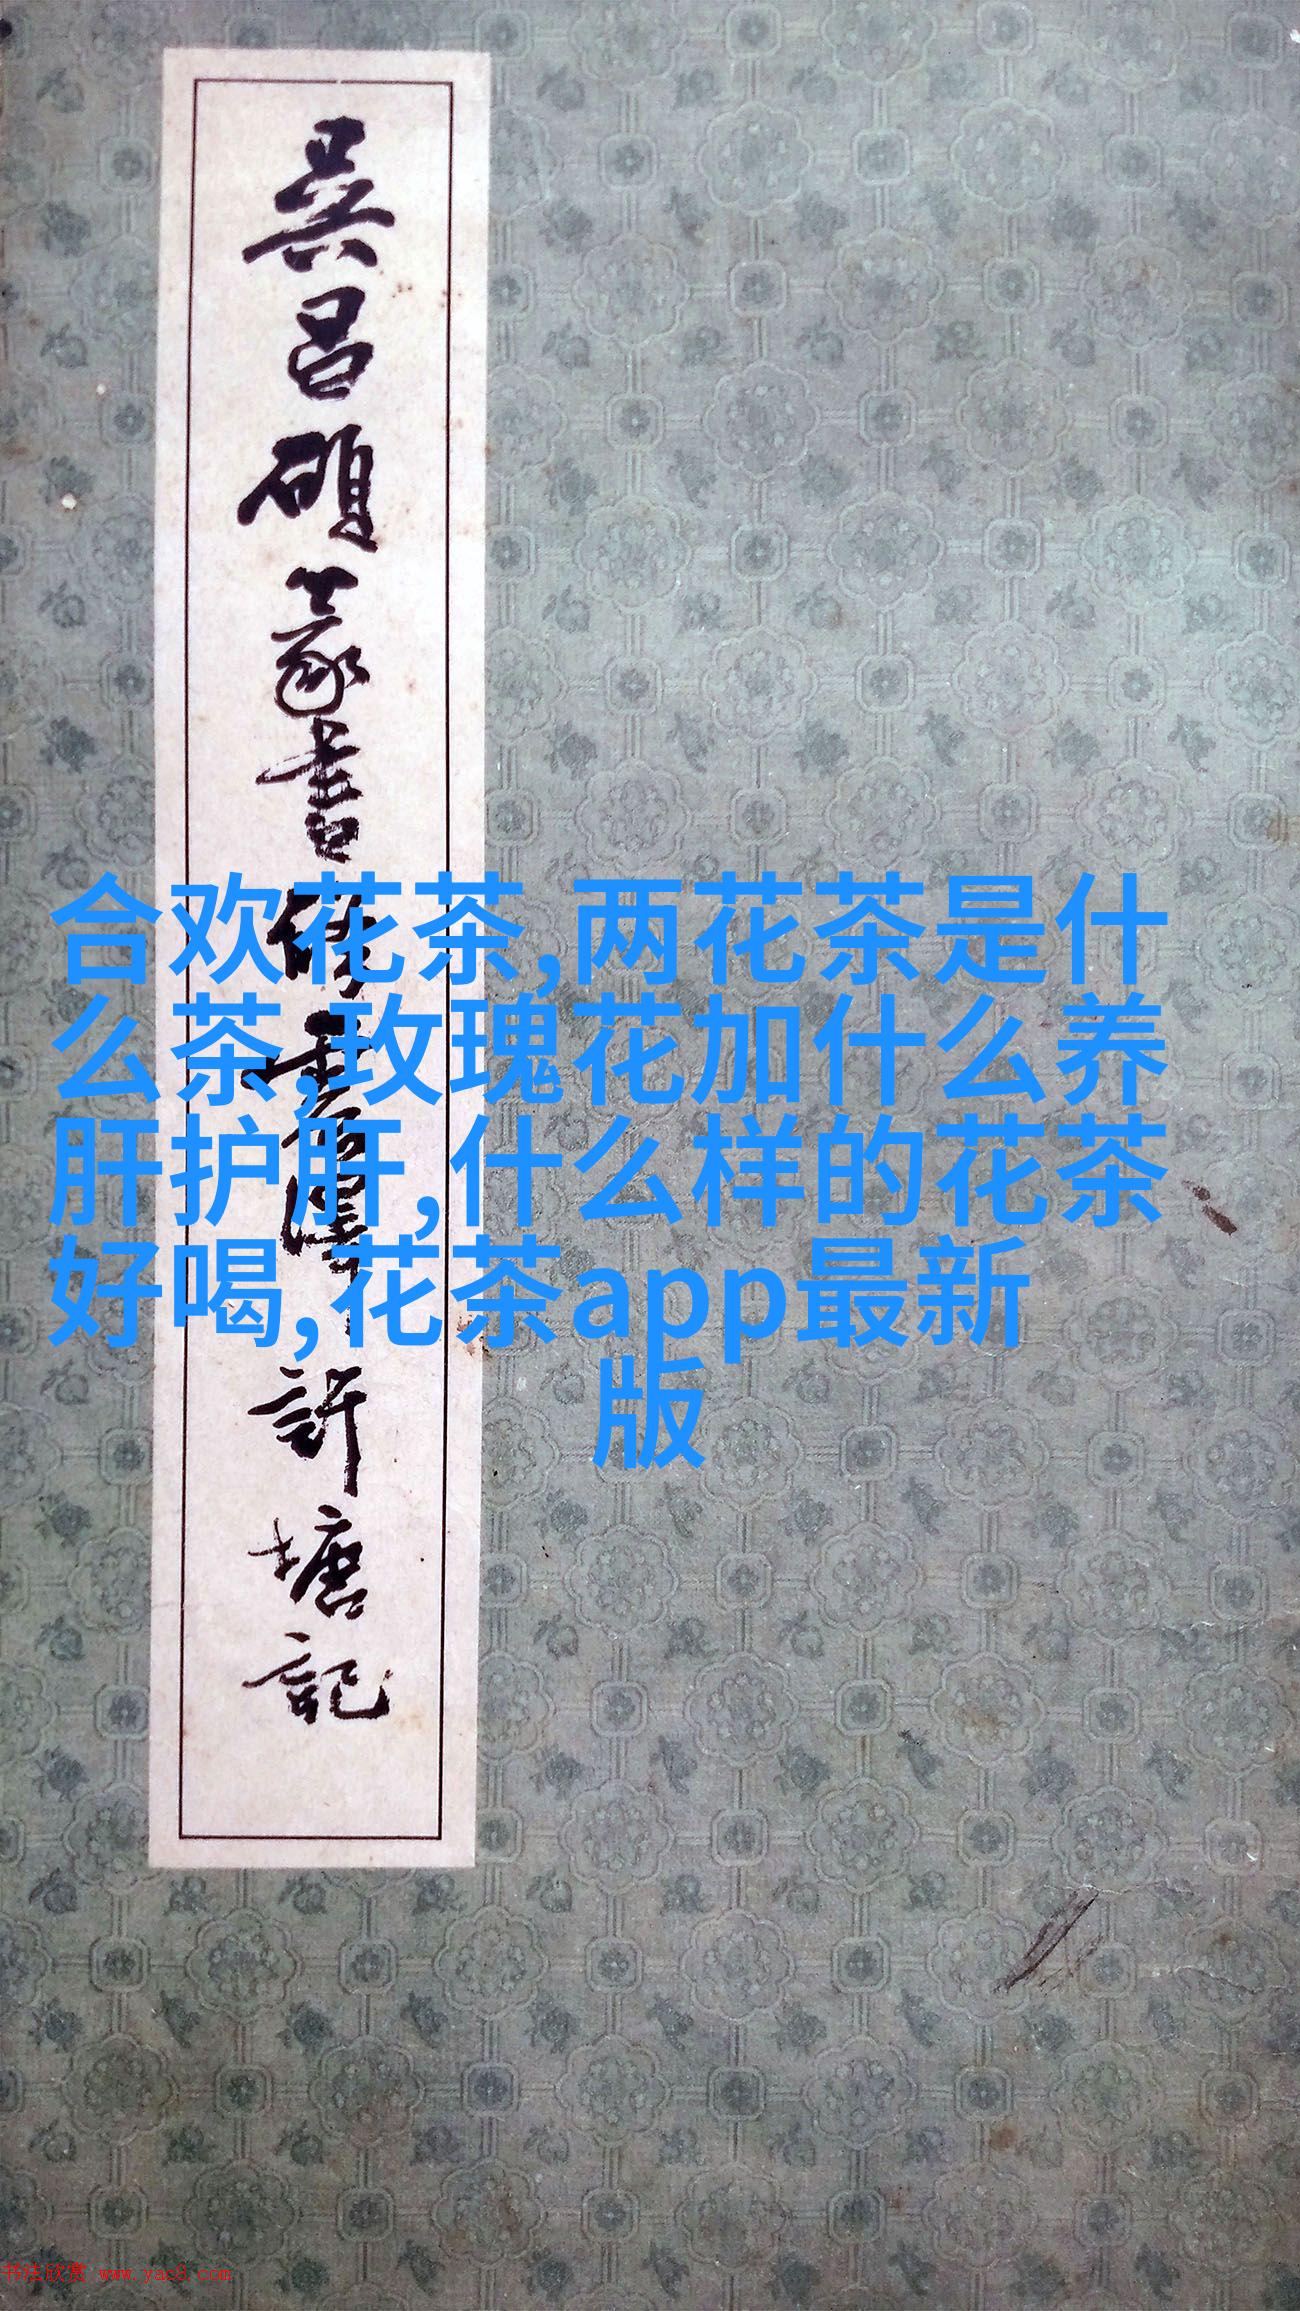 吴昌硕篆书修震泽许塘記
合欢花茶,两花茶是什
么茶,玫瑰花加什么养
肝护肝,什么样的花茶
好喝,花茶app最新
版
书法欣赏 www.yac8.com